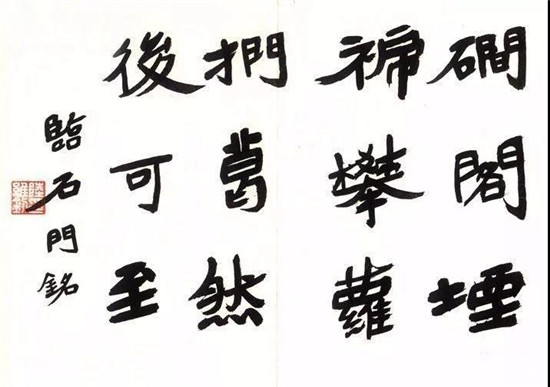 磵閣堙
禘攀蘿
捫葛然
後可至
臨石門銘
陸維釗